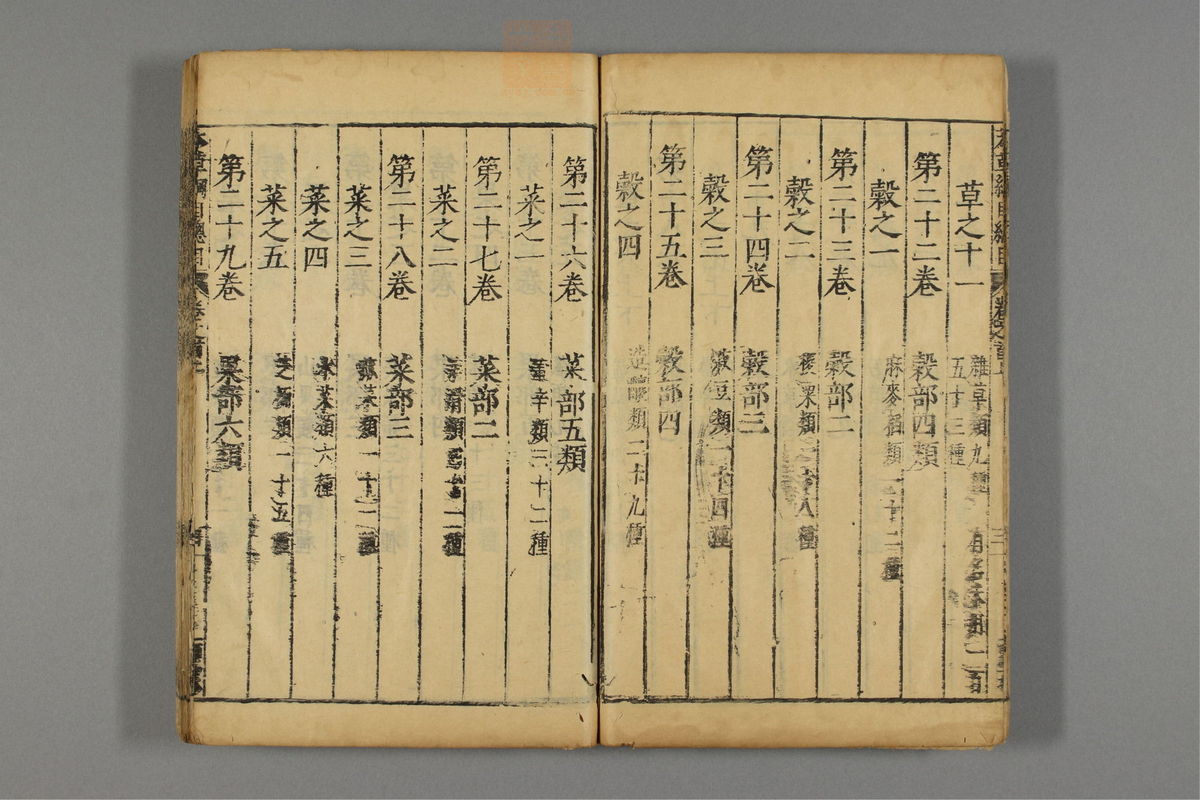 草之十一 雜草類九種 有名未用一百五十三種
第二十二卷 穀部四類
穀之一 麻麥稻類一十二種
第二十三卷 穀部二
穀之二 稷粟類一十八種
第二十四卷 穀部三
穀之三 菽豆類一十四種
第二十五卷 穀部四
穀之四 造釀類二十九種
第二十六卷 菜部五類
菜之一 薰辛類三十二種
第二十七卷 菜部二
菜之二 柔滑類四十一種
第二十八卷 菜部三
菜之三 蓏菜類一十一種
菜之四 水菜類六種
菜之五 芝栭類一十五種
第二十九卷 果部六類
本草綱目總目 卷之首上